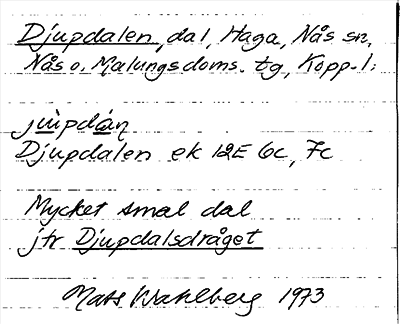 Djupdalen, dal, Haga, Nås sn,
Nås o. Malungs doms. tg, Kopp. l.
jùpdáṇ
Djupdalen ek 12E 6c, 7c
Mycket smal dal
jfr Djupdalsdråget
Mats Wahlberg 1973